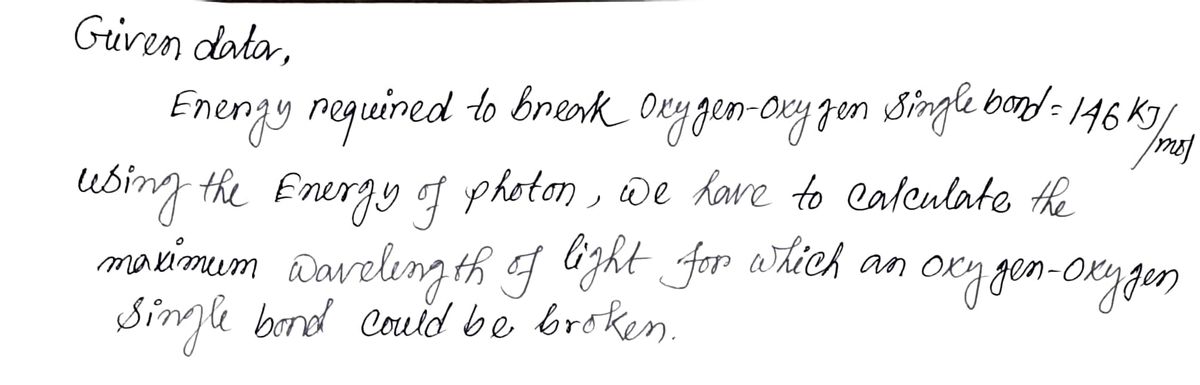 Given data,
Energy required to break Oxygen-Oxygen Single bond = 146 KJ/mol
using the Energy of photon, we have to calculate the
maximum wavelength of light for which an oxygen-oxygen
Single bond could be broken.